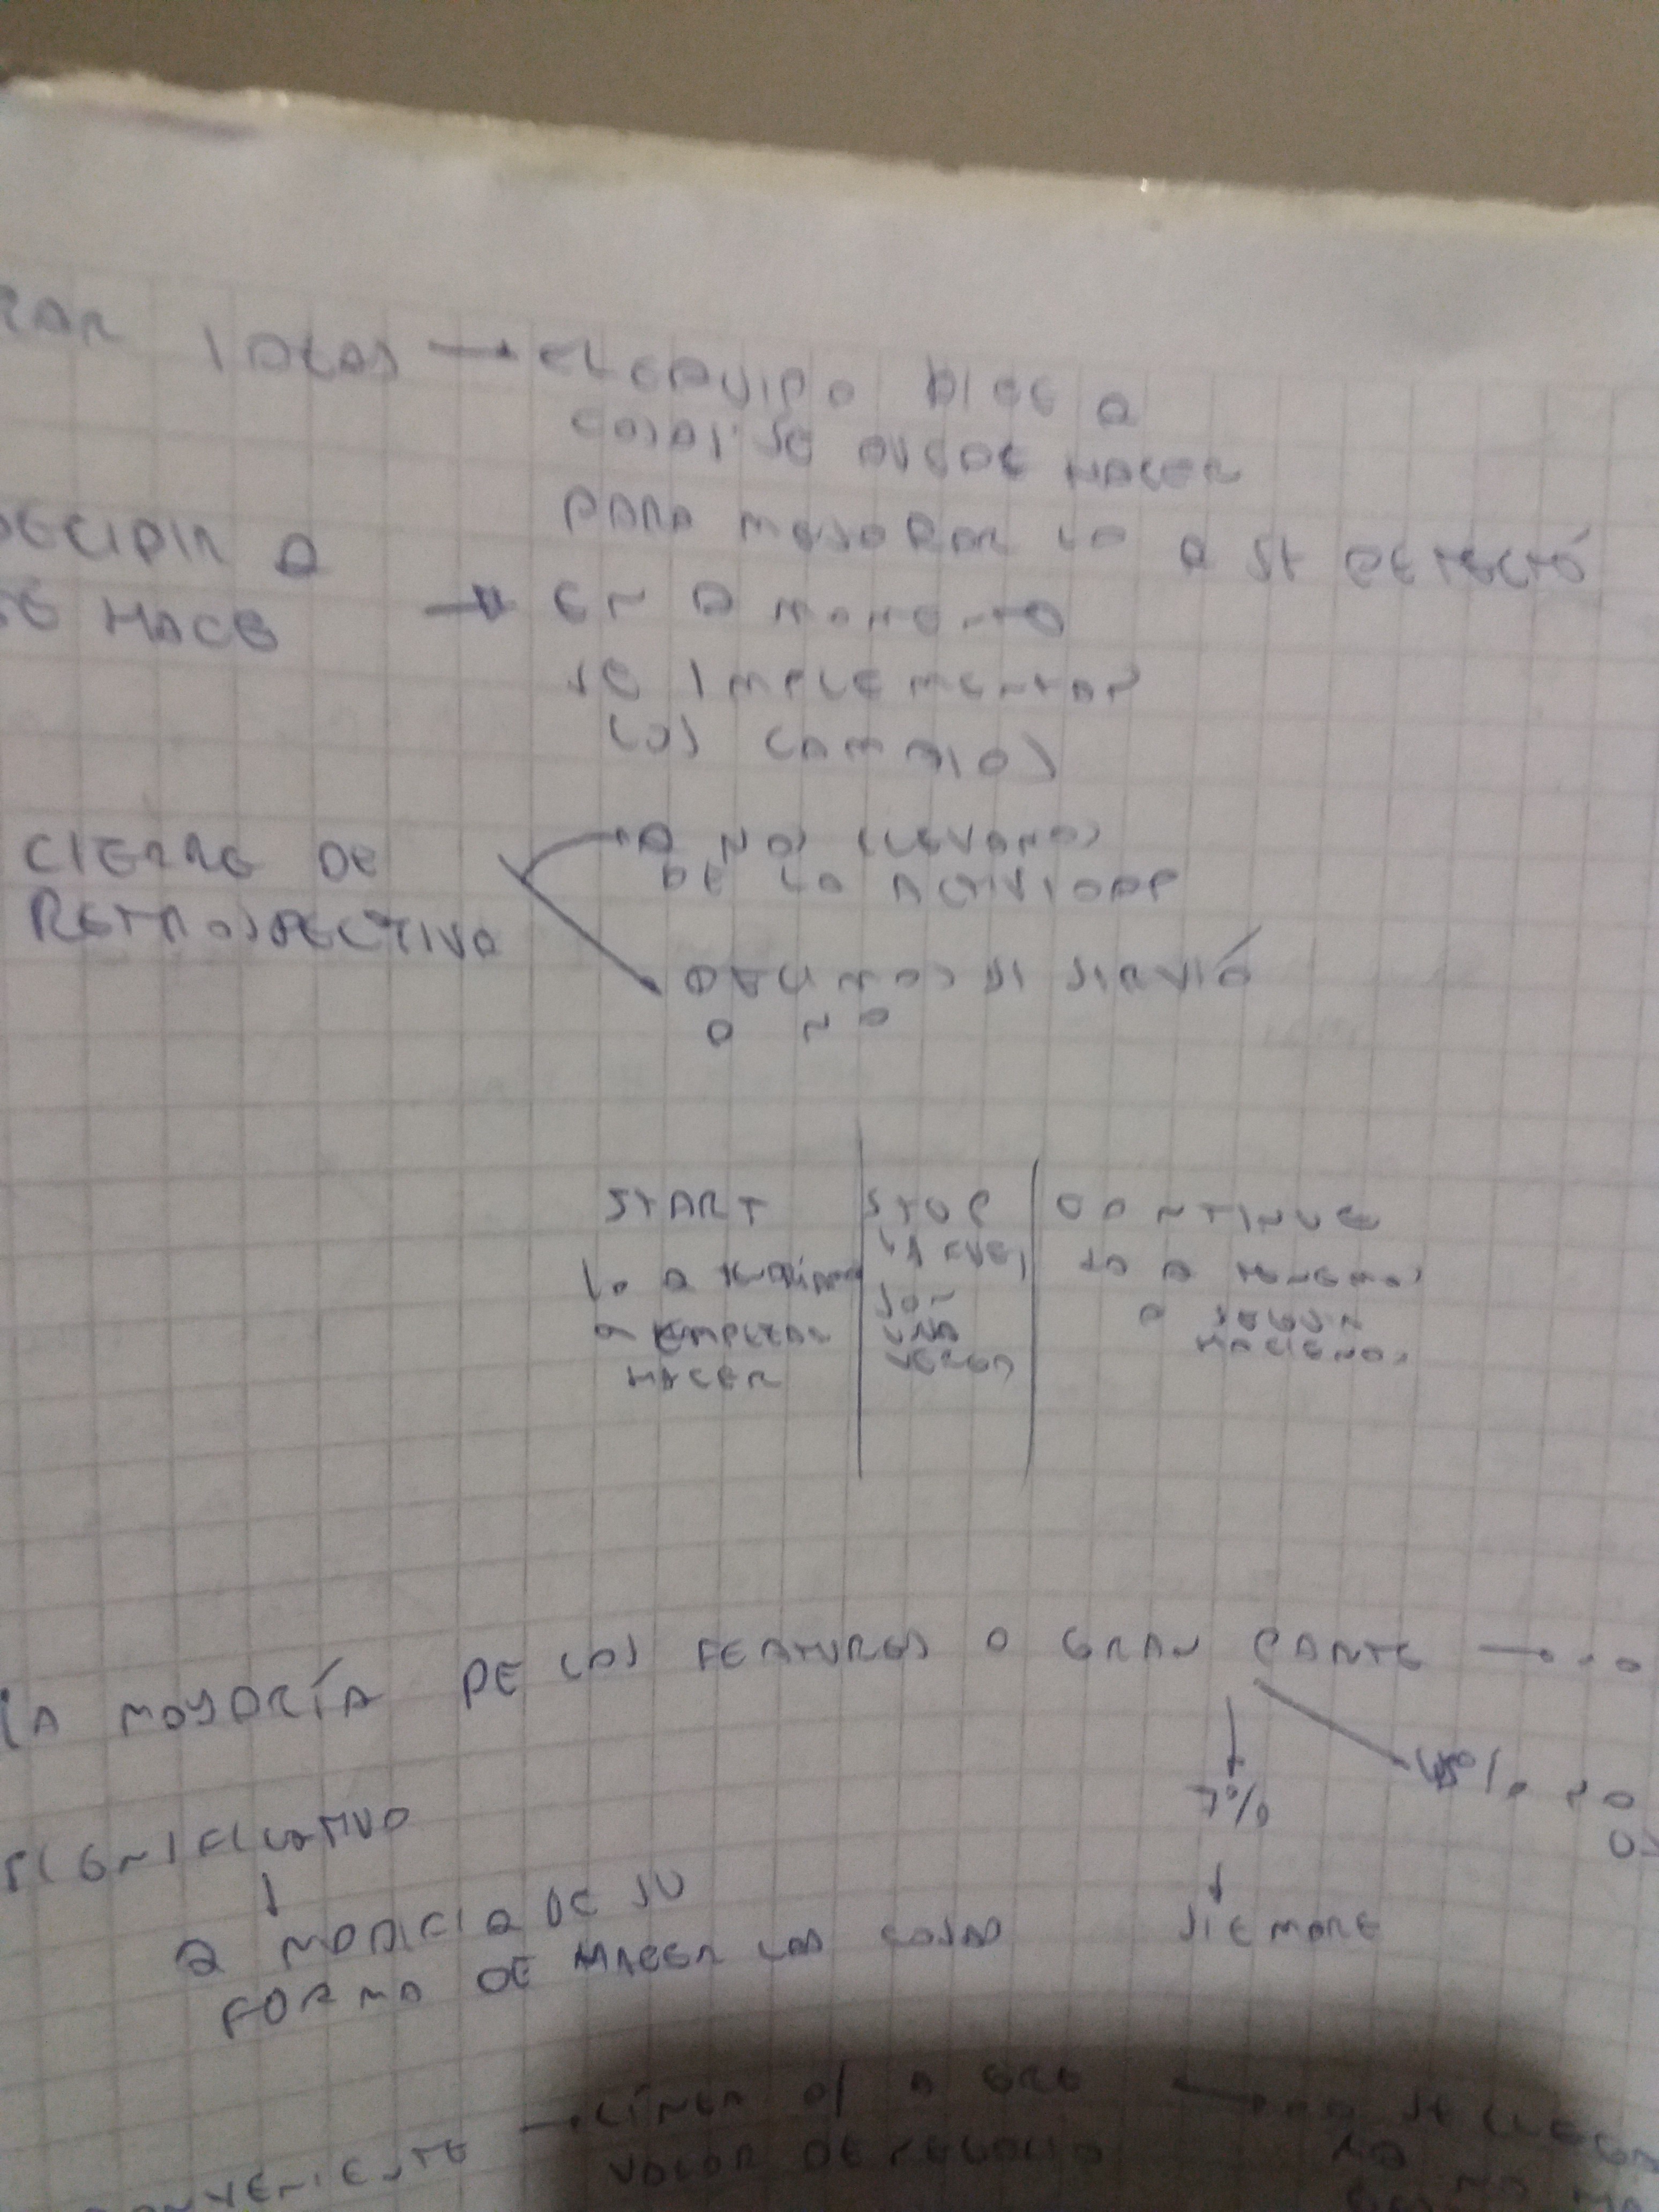 RAR IDEAS → EL EQUIPO DICE Q
COSAS SE PUEDE HACER
PARA MEJORAR LO Q SE DETECTÓ
DECIDIR Q
SE HACE → EN Q MOMENTO
SE IMPLEMENTAN
LOS CAMBIOS
CIERRE DE
RETROSPECTIVA
Q NOS LLEVAMOS
DE LA ACTIVIDAD
DECIMOS SI SIRVIÓ
O NO
START | STOP | CONTINUE
LO Q TENDRÍAMOS
A EMPEZAR
HACER
SON
UNA
VERGA
LO Q TENEMOS
Q SEGUIR
HACIENDO
LA MAYORÍA DE LOS FEATURES O GRAN PARTE → ...
7%
45%
SIEMPRE
SIGNIFICATIVO
↓
Q MODIFIQ DE SU
FORMA DE HACER LAS COSAS
→ LÍNEA
VALOR DE NEGOCIO